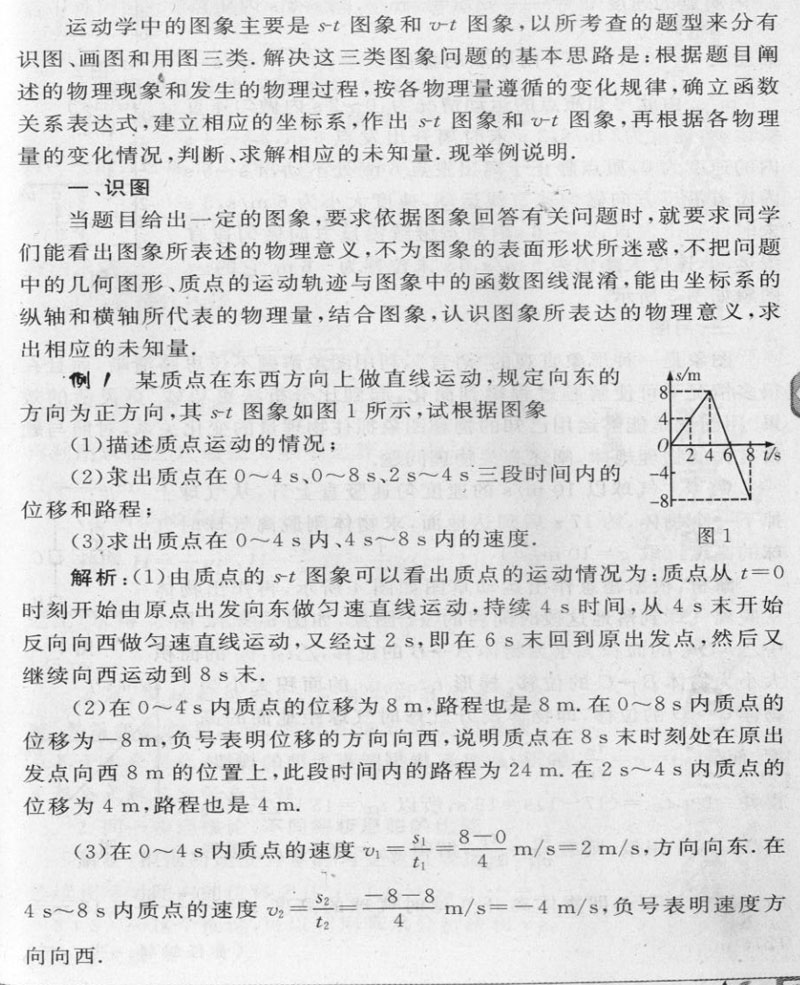 运动学中的图象主要是 s-t 图象和 v-t 图象,以所考查的题型来分有
识图、画图和用图三类.解决这三类图象问题的基本思路是:根据题目阐
述的物理现象和发生的物理过程,按各物理量遵循的变化规律,确立函数
关系表达式,建立相应的坐标系,作出 s-t 图象和 v-t 图象,再根据各物理
量的变化情况,判断、求解相应的未知量.现举例说明.
一、识图
当题目给出一定的图象,要求依据图象回答有关问题时,就要求同学
们能看出图象所表述的物理意义,不为图象的表面形状所迷惑,不把问题
中的几何图形、质点的运动轨迹与图象中的函数图线混淆,能由坐标系的
纵轴和横轴所代表的物理量,结合图象,认识图象所表达的物理意义,求
出相应的未知量.
例1 某质点在东西方向上做直线运动,规定向东的
方向为正方向,其 s-t 图象如图 1 所示,试根据图象
(1)描述质点运动的情况;
(2)求出质点在 0～4 s、0～8 s、2 s～4 s 三段时间内的
位移和路程;
(3)求出质点在 0～4 s 内、4 s～8 s 内的速度.
s/m
8
4
O
2 4 6 8 t/s
-4
-8
图 1
解析:(1)由质点的 s-t 图象可以看出质点的运动情况为:质点从 t=0
时刻开始由原点出发向东做匀速直线运动,持续 4 s 时间,从 4 s 末开始
反向向西做匀速直线运动,又经过 2 s,即在 6 s 末回到原出发点,然后又
继续向西运动到 8 s 末.
(2)在 0～4 s 内质点的位移为 8 m,路程也是 8 m.在 0～8 s 内质点的
位移为-8 m,负号表明位移的方向向西,说明质点在 8 s 末时刻处在原出
发点向西 8 m 的位置上,此段时间内的路程为 24 m.在 2 s～4 s 内质点的
位移为 4 m,路程也是 4 m.
(3)在 0～4 s 内质点的速度 v₁=s₁/t₁=(8-0)/4 m/s=2 m/s,方向向东.在
4 s～8 s 内质点的速度 v₂=s₂/t₂=(-8-8)/4 m/s=-4 m/s,负号表明速度方
向向西.